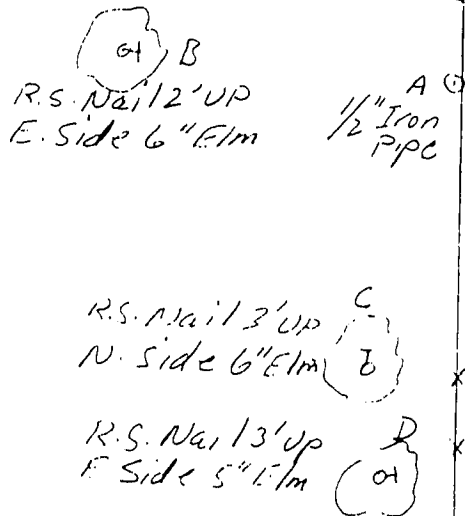 B
R.S. Nail 2' UP
E. Side 6" Elm
A
1/2" Iron
Pipe
C
R.S. Nail 3' UP
N. Side 6" Elm
D
R.S. Nail 3' UP
E Side 5" Elm